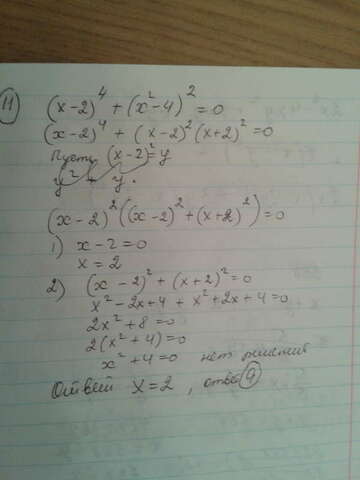 11
(x-2)⁴ + (x²-4)² = 0
(x-2)⁴ + (x-2)²(x+2)² = 0
Пусть (x-2)² = y
y² + y.
(x-2)²((x-2)² + (x+2)²) = 0
1) x-2=0
x = 2
2) (x-2)² + (x+2)² = 0
x² - 2x+4 + x² + 2x + 4 = 0
2x² + 8 = 0
2(x² + 4) = 0
x² + 4 = 0 нет решений
Ответ x = 2, ответ 9